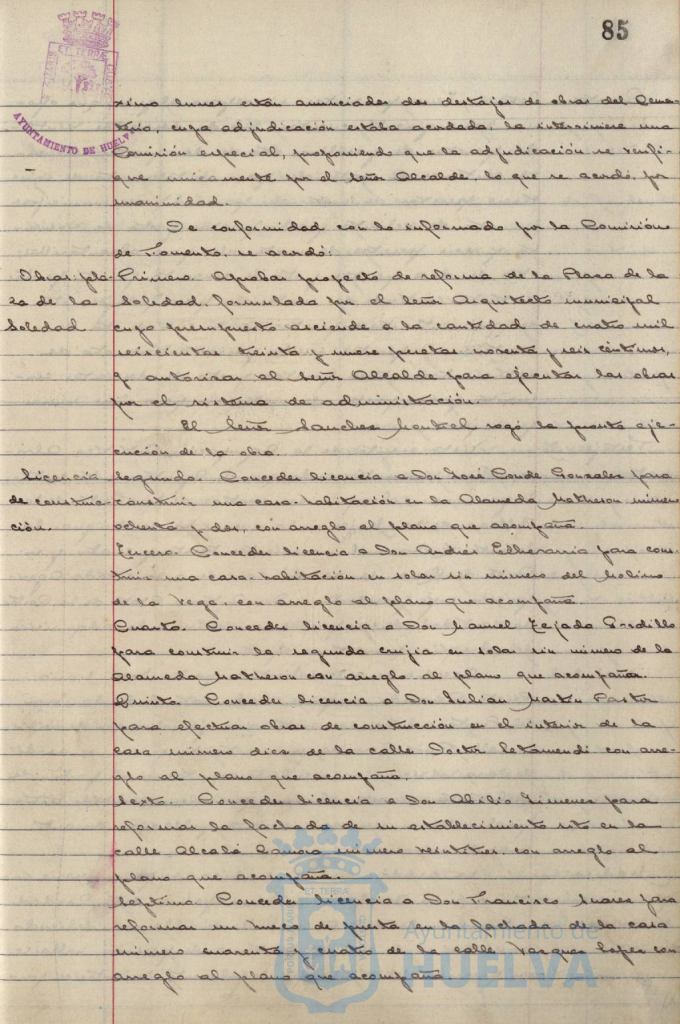 85
AYUNTAMIENTO DE HUELVA
ximo lunes están anunciados dos destajos de obras del Cemen-
terio, cuya adjudicación estaba acordada, la interviniere una
Comisión especial, proponiendo que la adjudicación se verifi-
que unicamente por el Señor Alcalde, lo que se acordó, por
unanimidad.
De conformidad con lo informado por la Comisión
de Fomento, se acordó:
Obras: pla-
za de la
Soledad
Primero. Aprobar proyecto de reforma de la Plaza de la
Soledad, formulada por el Señor Arquitecto municipal
cuyo presupuesto asciende a la cantidad de cuatro mil
seiscientas treinta y nueve pesetas noventa y seis céntimos,
y autorizar al Señor Alcalde para ejecutar las obras
por el sistema de administración.
El Señor Sanchez rogó la pronta eje-
cución de la obra.
Licencia
de construc-
ción.
Segundo. Conceder licencia a Don José Conde Gonzalez para
construir una casa-habitación en la Alameda Matheson número
ochenta y dos, con arreglo al plano que acompaña.
Tercero. Conceder licencia a Don Andrés Etcheverria para cons-
truir una casa-habitación en solar sin número del Molino
de la Vega, con arreglo al plano que acompaña.
Cuarto. Conceder licencia a Don Manuel Tejada
para construir la segunda crujia en solar sin número de la
Alameda Matheson con arreglo al plano que acompaña.
Quinto. Conceder licencia a Don Julian Martin Pastor
para efectuar obras de construcción en el interior de la
casa número diez de la calle Doctor Letamendi con arre-
glo al plano que acompaña.
Sexto. Conceder licencia a Don Abilio Jimenez para
reformar la fachada de su establecimiento sito en la
calle Alcalá Zamora número veintitres, con arreglo al
plano que acompaña.
Septimo. Conceder licencia a Don Francisco Suarez para
reformar un hueco de puerta en la fachada de la casa
número cuarenta y cuatro de la calle Vazquez Lopez con
arreglo al plano que acompaña.
Ayuntamiento de
HUELVA